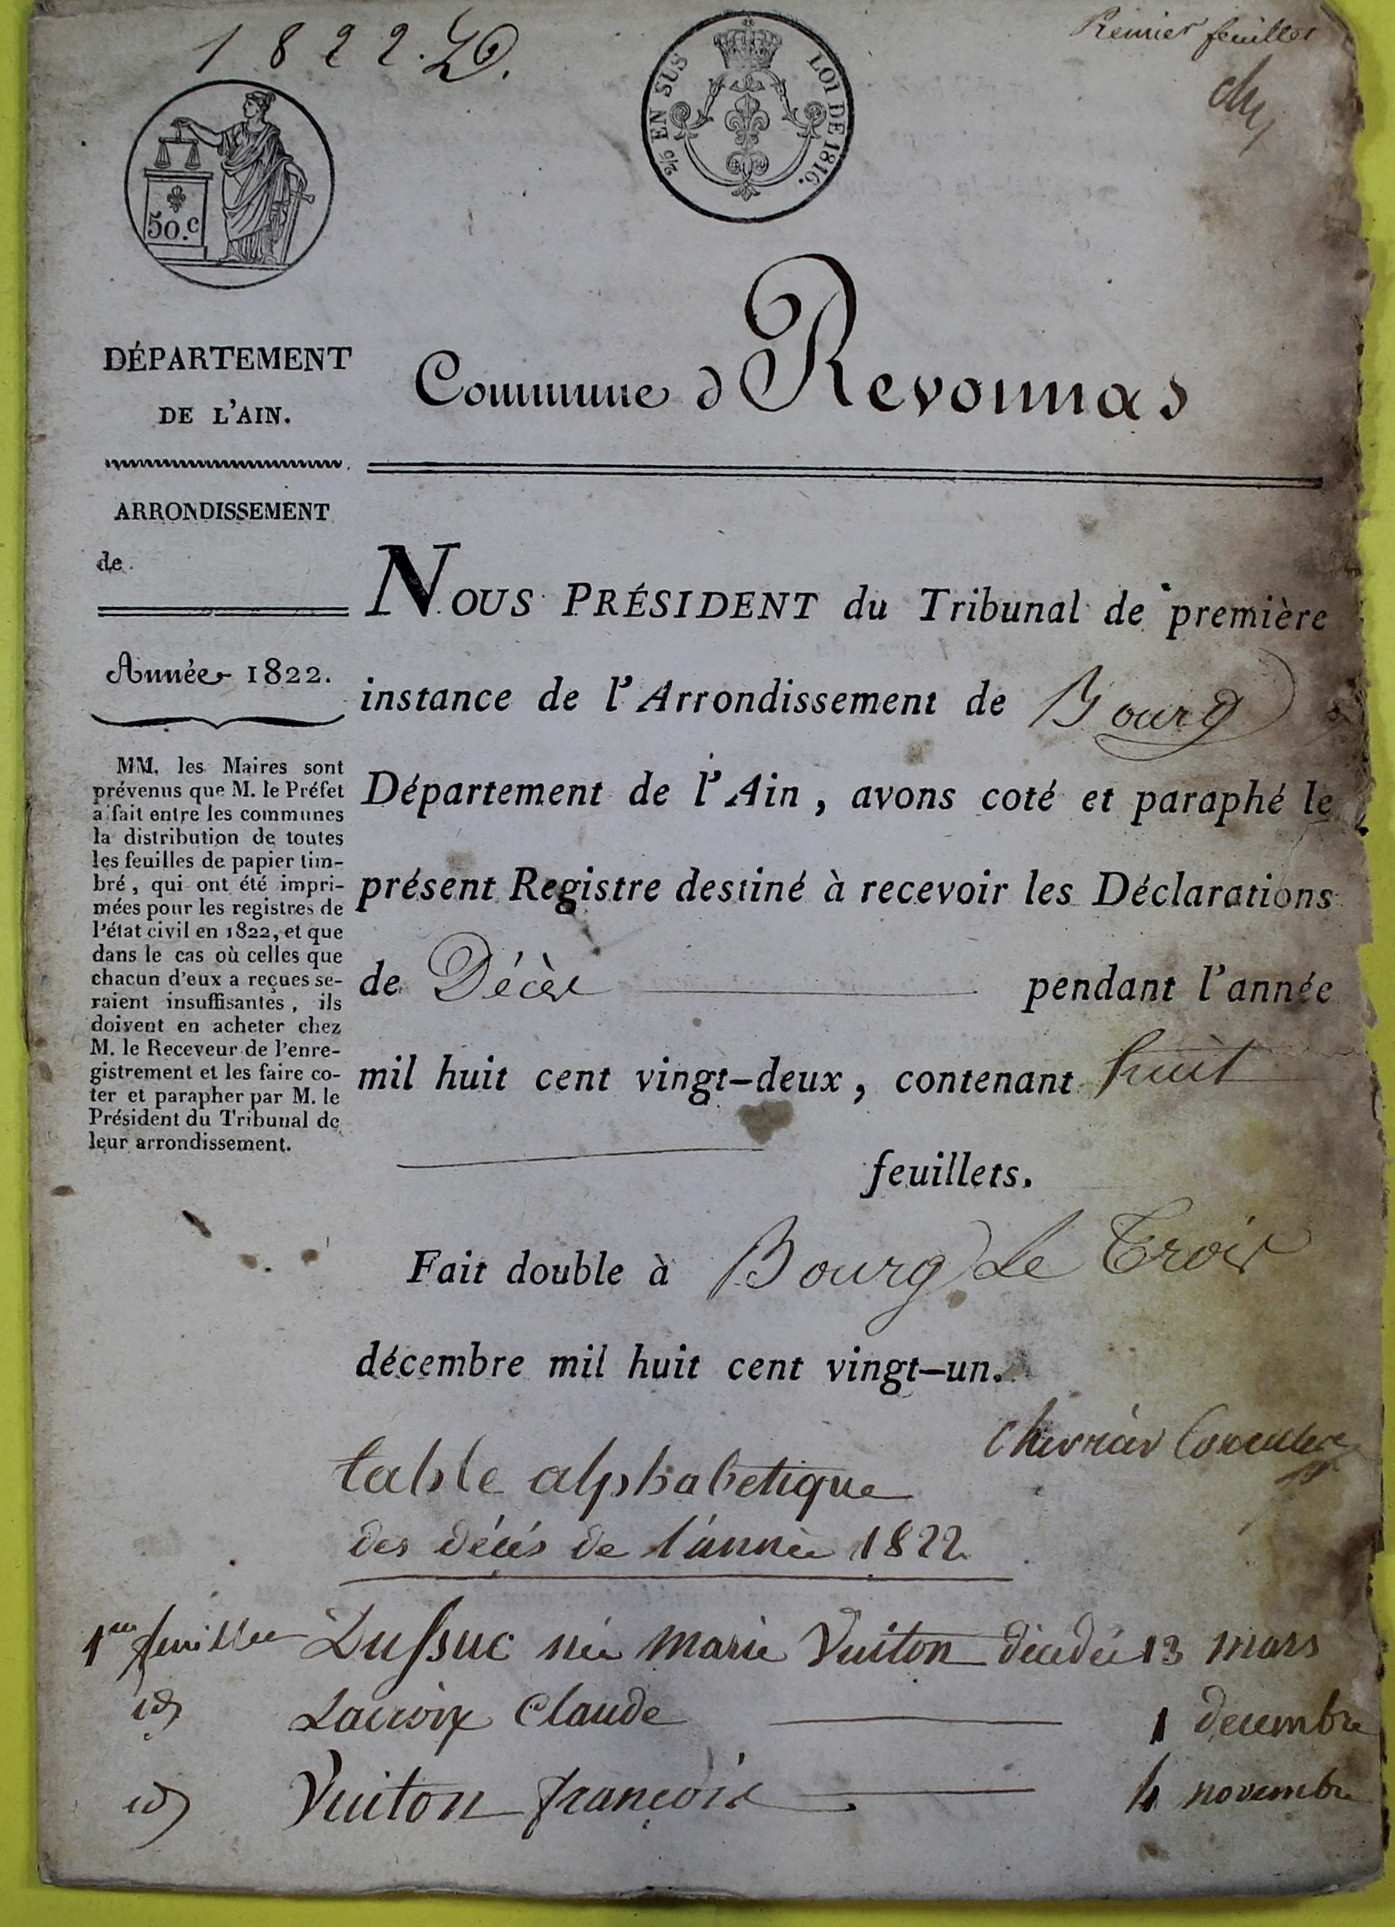 1822. D.
Premier feuillet
2/5 EN SUS
LOI DE 1816.
50.c
DÉPARTEMENT
DE L'AIN.
Commune d Revonnas
ARRONDISSEMENT
de
Année 1822.
MM. les Maires sont
prévenus que M. le Préfet
a fait entre les communes
la distribution de toutes
les feuilles de papier tim-
bré, qui ont été impri-
mées pour les registres de
l'état civil en 1822, et que
dans le cas où celles que
chacun d'eux a reçues se-
raient insuffisantes, ils
doivent en acheter chez
M. le Receveur de l'enre-
gistrement et les faire co-
ter et parapher par M. le
Président du Tribunal de
leur arrondissement.
NOUS PRÉSIDENT du Tribunal de première
instance de l'Arrondissement de Bourg
Département de l'Ain, avons coté et paraphé le
présent Registre destiné à recevoir les Déclarations
de Décès pendant l'année
mil huit cent vingt-deux, contenant huit
feuillets.
Fait double à Bourg Le Trois
décembre mil huit cent vingt-un.
table alphabetique
des décés de l'année 1822
1er feuillet Dussuc née Marie Vuiton décédée 13 mars
id Lacroix Claude 1 decembre
id Vuiton françois 4 novembre